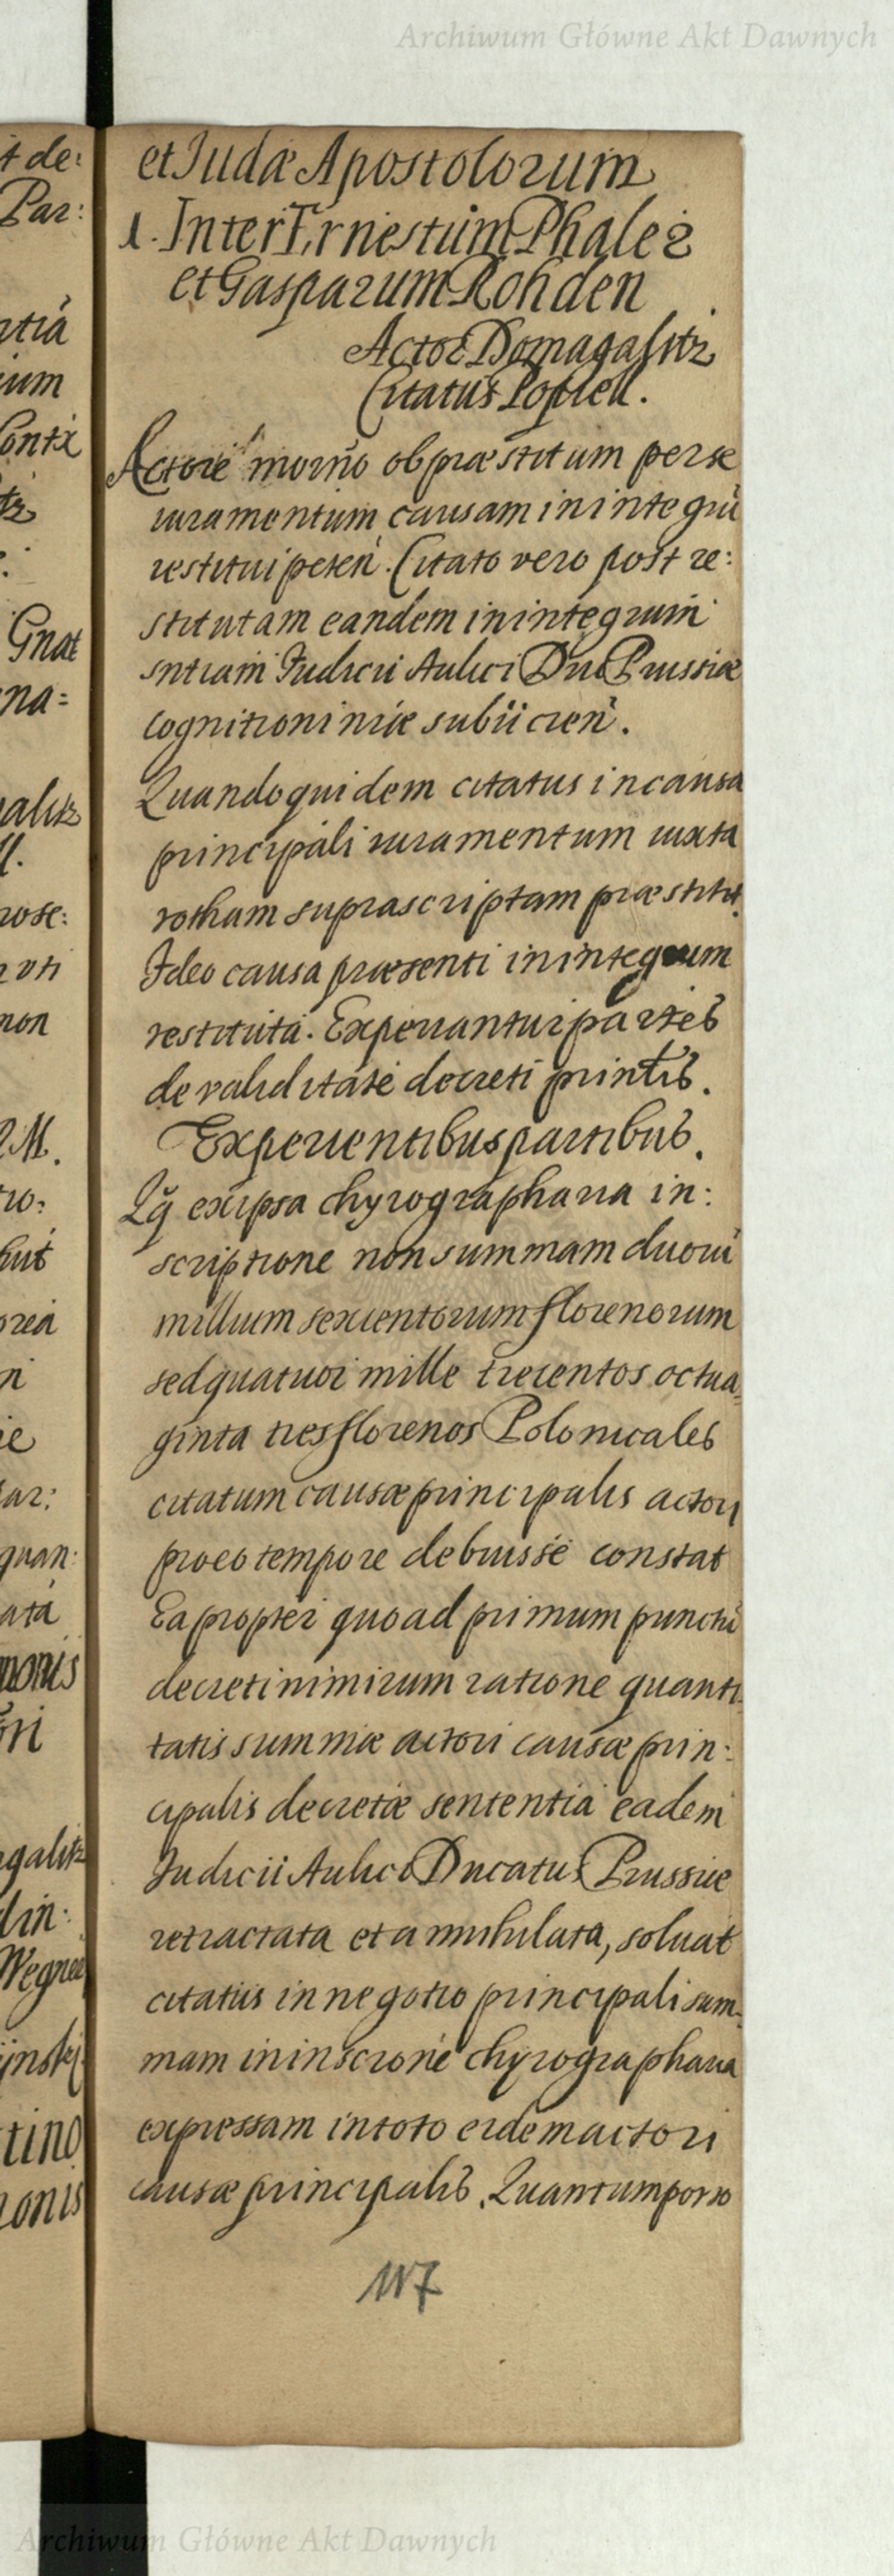 Archiwum Główne Akt Dawnych
et Judæ Apostolorum
1. Inter Ernestum Phaler
et Gasparum Rohden
Actor Domagalitz
Citatus Poplell.
Actore præstitum per se
iuramentum causam in integrũ
restitui peten̄. Citato vero post re:
stitutam eandem in integrum
sntiam Judicii Aulici Duc Prussiæ
cognitioni nr̄æ subiicien̄.
Quandoquidem citatus in causa
principali iuramentum iuxta
rotham suprascriptam præstitit.
Ideo causa præsenti in integrum
restituta. Experiantur partes
de validitate decreti prin̄tis.
Experientibus partibus.
Qq̃ ex ipsa chyrographaria in:
scriptione non summam duorũ
millium sexcentorum florenorum
sed quatuor mille trecentos octua
ginta tres florenos Polonicales
citatum causæ principalis actori
pro eo tempore debuisse constat
Ea propter quoad primum punctũ
decreti nimirum ratione quanti
tatis summæ actori causæ prin:
cipalis decretæ sententia eadem
Judicii Aulici Ducatus Prussiæ
retractata et annihilata, soluat
citatus in negotio principali sum
mam in inscrone chyrographaria
expressam in toto eidem actori
causæ principalis. Quantum porro
117
Archiwum Główne Akt Dawnych